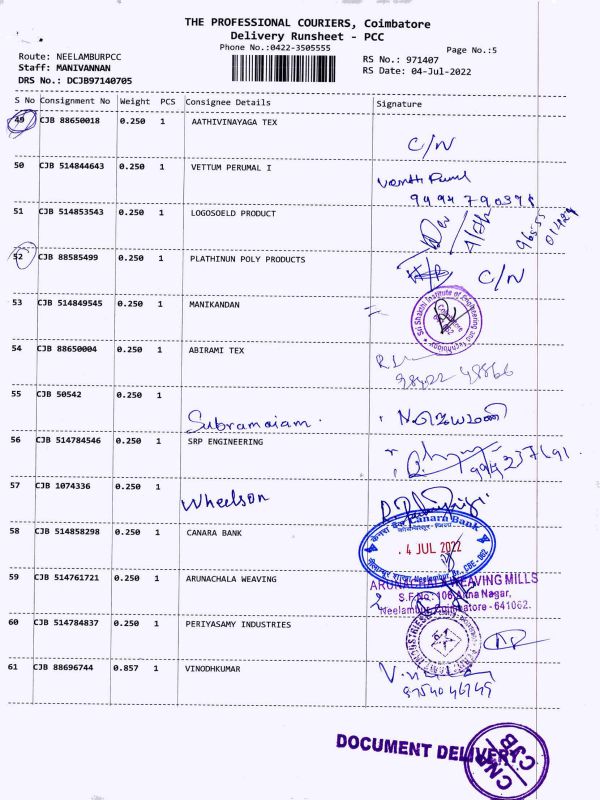 THE PROFESSIONAL COURIERS, Coimbatore
Delivery Runsheet - PCC
Phone No.:0422-3505555
Page No.:5
Route: NEELAMBURPCC
RS No.: 971407
Staff: MANIVANNAN
RS Date: 04-Jul-2022
DRS No.: DCJB97140705
S No Consignment No Weight PCS Consignee Details Signature
49 CJB 88650018 0.250 1 AATHIVINAYAGA TEX
C/N
50 CJB 514844643 0.250 1 VETTUM PERUMAL I
51 CJB 514853543 0.250 1 LOGOSOELD PRODUCT
52 CJB 88585499 0.250 1 PLATHINUN POLY PRODUCTS
C/N
53 CJB 514849545 0.250 1 MANIKANDAN
Sri Shakthi Institute of Engineering and Technology
54 CJB 88650004 0.250 1 ABIRAMI TEX
55 CJB 50542 0.250 1
Subramaiam.
56 CJB 514784546 0.250 1 SRP ENGINEERING
57 CJB 1074336 0.250 1
Wheelson
58 CJB 514858298 0.250 1 CANARA BANK
केनरा बैंक Canara Bank
4 JUL 2022
Neelambur Br., CBE - 062
59 CJB 514761721 0.250 1 ARUNACHALA WEAVING
ARUNACHALA WEAVING MILLS
S.F.No: 106, Anna Nagar,
Neelambur, Coimbatore - 641062.
60 CJB 514784837 0.250 1 PERIYASAMY INDUSTRIES
61 CJB 88696744 0.857 1 VINODHKUMAR
9754046749
DOCUMENT DELIVERY
CNP/
CJB